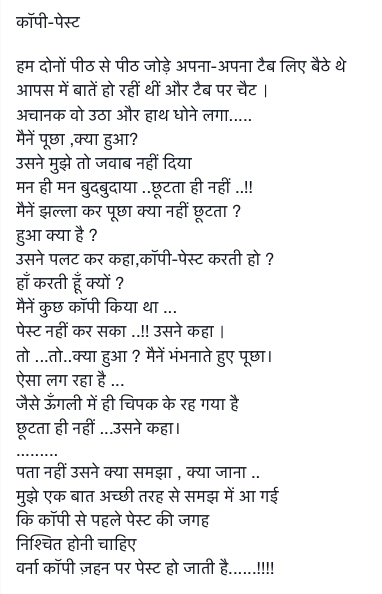 कॉपी-पेस्ट
हम दोनों पीठ से पीठ जोड़े अपना-अपना टैब लिए बैठे थे
आपस में बातें हो रहीं थीं और टैब पर चैट ।
अचानक वो उठा और हाथ धोने लगा.....
मैनें पूछा ,क्या हुआ?
उसने मुझे तो जवाब नहीं दिया
मन ही मन बुदबुदाया ..छूटता ही नहीं ..!!
मैनें झल्ला कर पूछा क्या नहीं छूटता ?
हुआ क्या है ?
उसने पलट कर कहा,कॉपी-पेस्ट करती हो ?
हाँ करती हूँ क्यों ?
मैनें कुछ कॉपी किया था ...
पेस्ट नहीं कर सका ..!! उसने कहा ।
तो ...तो..क्या हुआ ? मैनें भंभनाते हुए पूछा।
ऐसा लग रहा है ...
जैसे ऊँगली में ही चिपक के रह गया है
छूटता ही नहीं ...उसने कहा।
.........
पता नहीं उसने क्या समझा , क्या जाना ..
मुझे एक बात अच्छी तरह से समझ में आ गई
कि कॉपी से पहले पेस्ट की जगह
निश्चित होनी चाहिए
वर्ना कॉपी ज़हन पर पेस्ट हो जाती है......!!!!